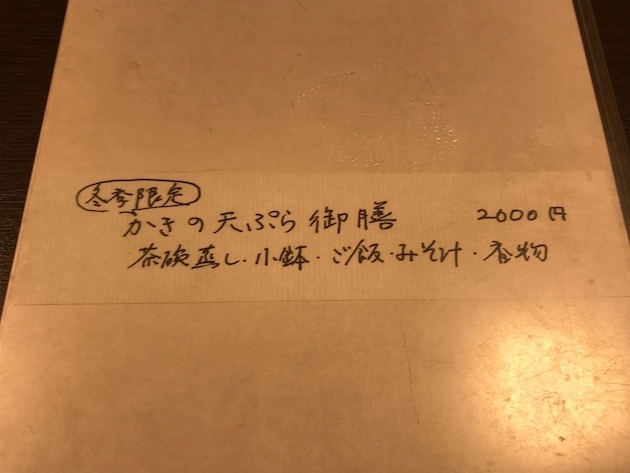 冬季限定
かきの天ぷら御膳 2000円
茶碗蒸し・小鉢・ご飯・みそ汁・香物